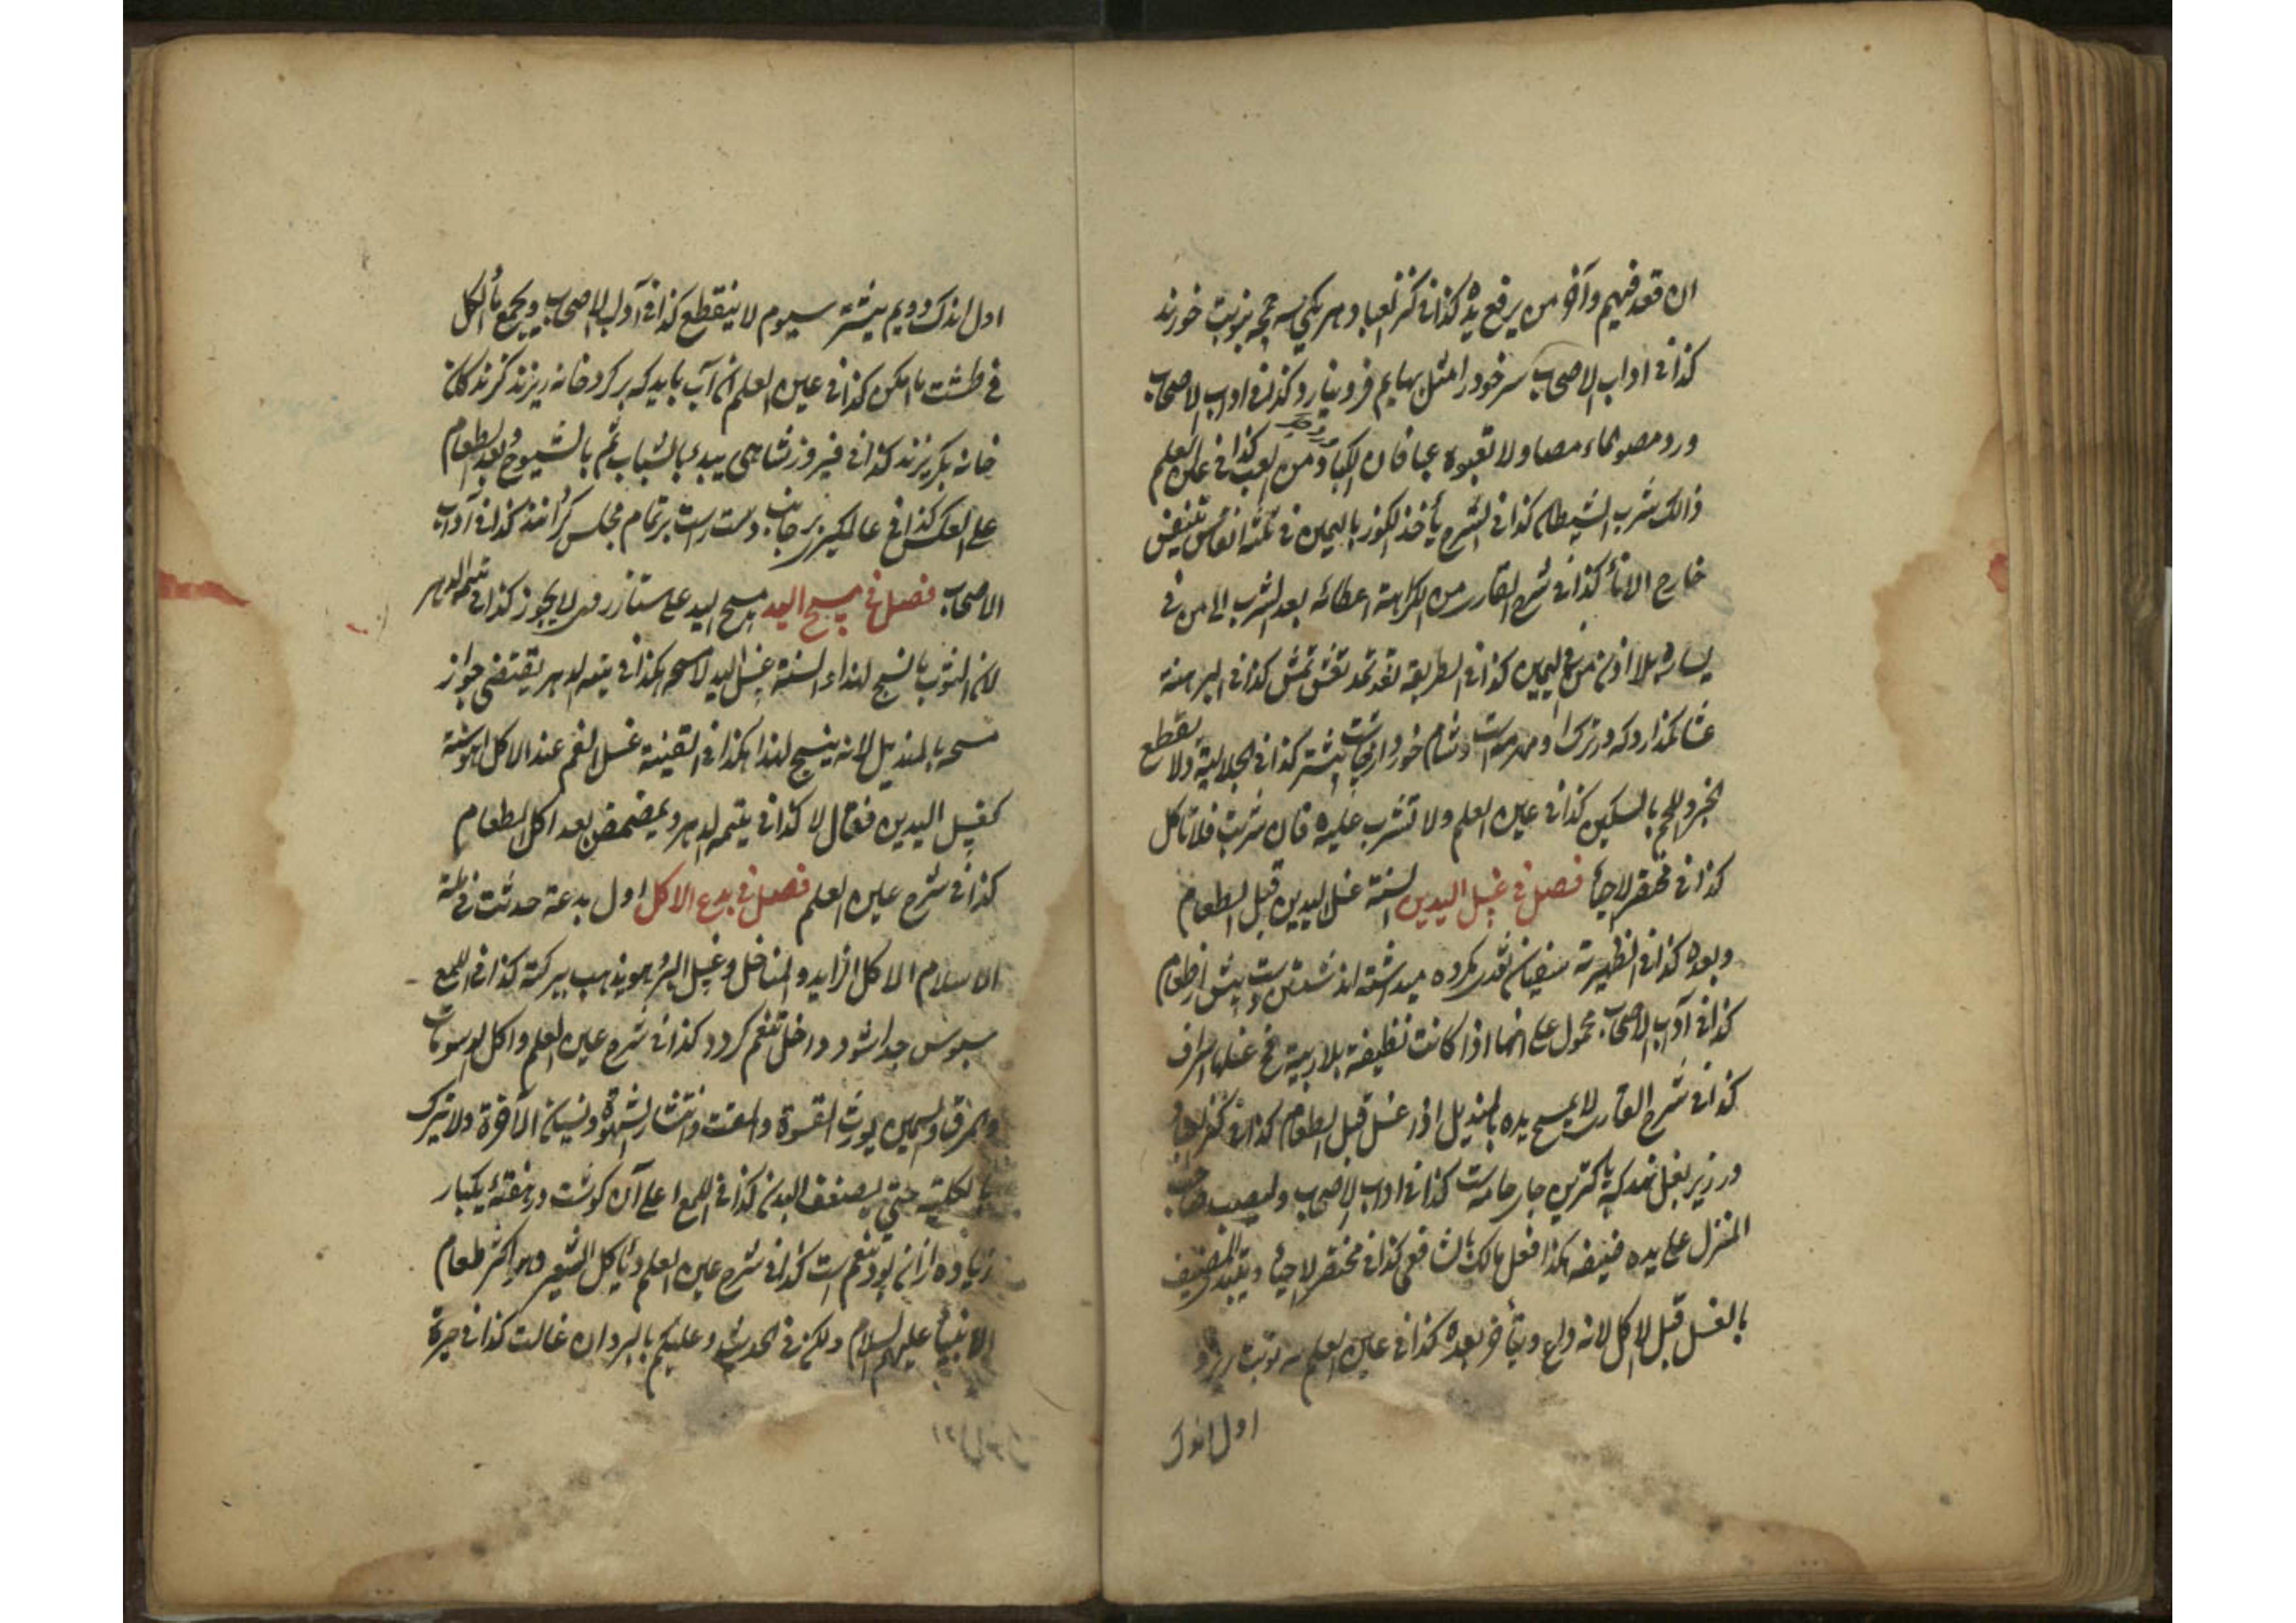 ان قعد فيهم وآخر من يرفع يده كذا في كنز العباد و هر يكي سه جمجه بنوبت خورند
كذا في اداب الاصحاب سر خود را مثل بهايم فرو نيارد كذا في اداب الاصحاب
ورد مصوا الماء مصا ولا تعبوه عبا فان الكباد من العب كذا في عين العلم
ذالك شرب الشيطان كذا في الشرح يأخذ الكوز باليمين في ثلثة انفاس يتنفس
خارج الاناء كذا في شرح القاري من الكراهة اعطائه بعد الشرب الى من في
يساره بلا اذن من في اليمين كذا في الطريقة تغد تمد تعش تمش كذا في البرهنة
عشا نكذارد كه در ترك او مهرمت است و شام خوردن بيشتر كذا في الجلالية ولا يقطع
الخبز واللحم بالسكين كذا في عين العلم ولا تشرب عليه فان شربت فلا تأكل
كذا في مختصر الاحياء فصل في غسل اليدين السنة غسل اليدين قبل الطعام
وبعده كذا في الظهيرية سفيان ثوري مكروه ميداشته اند شستن دست پيش از طعام
كذا في آداب الاصحاب محمول على انها اذا كانت نظيفة بلا ريبة فح غسلها اسراف
كذا في شرح القاري لا يمسح يده بالمنديل اذا غسل قبل الطعام كذا في كنز العباد
در زير بغل نهد كه پاكترين جاي جامه است كذا في اداب الاصحاب و ليصب صاحب
المنزل على يده ضيفه هكذا فعل مالك بالشافعي كذا في مختصر الاحياء و يبتدأ المضيف
بالغسل قبل الاكل لانه داع و يتأخر بعده كذا في عين العلم سه نوبت
اول اندك
اول اندك دويم بيشتر سيوم لا ينقطع كذا في آداب الاصحاب و يجمع ماء الكل
في طشت ما امكن كذا في عين العلم آن آب بايد كه بر كرد خانه ريزند كرند كان
خانه بكريزند كذا في فيروز شاهي يبدء بالشباب ثم بالشيوخ و بعد الطعام
على العكس كذا في عالمكيري بر جانب دست راست بر تمام مجلس كرانند كذا في آداب
الاصحاب فصل في مسح اليد مسح اليد على لا يجوز كذا في يتيمة الدهر
لان الثوب ما نسج لهذا و السنة غسل اليد لا مسحه هكذا في يتيمة الدهر يقتضي جواز
مسحه بالمنديل لانه ينسج لهذا هكذا في القنية غسل الفم عند الاكل اهو سنة
كغسل اليدين فقال لا كذا في يتيمة الدهر و يمضمض بعد اكل الطعام
كذا في شرح عين العلم فصل في بدع الاكل اول بدعة حدثت في
الاسلام الاكل الزايد و المناخل و غسل البر و هو يذهب ببركته كذا في اللمع
سبوس جدا شود داخل تنعم كردد كذا في شرح عين العلم و اكل الدسومات
و المرق و السمين يورث القسوة و المقت و انتشار الشهوة و نسيان الآخرة ولا يترك
بالكلية حتى يضعف البدن كذا في اللمع اعلى آن كوشت در هفتهٔ يكبار
زياده از ان بود تنعم است كذا في شرح عين العلم و يأكل الشعير و هو اكثر طعام
الانبياء عليهم السلام و لكن في الحديث و عليكم بالبر و ان غالت كذا في حيرة